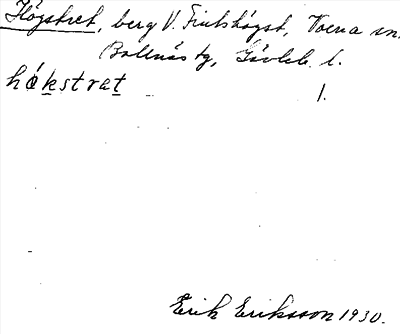 Högstret, berg V. Finnshögst, Voxna sn.
Bollnäs tg, Gävleb. l.
hókstrat 1.
Erik Eriksson 1930.